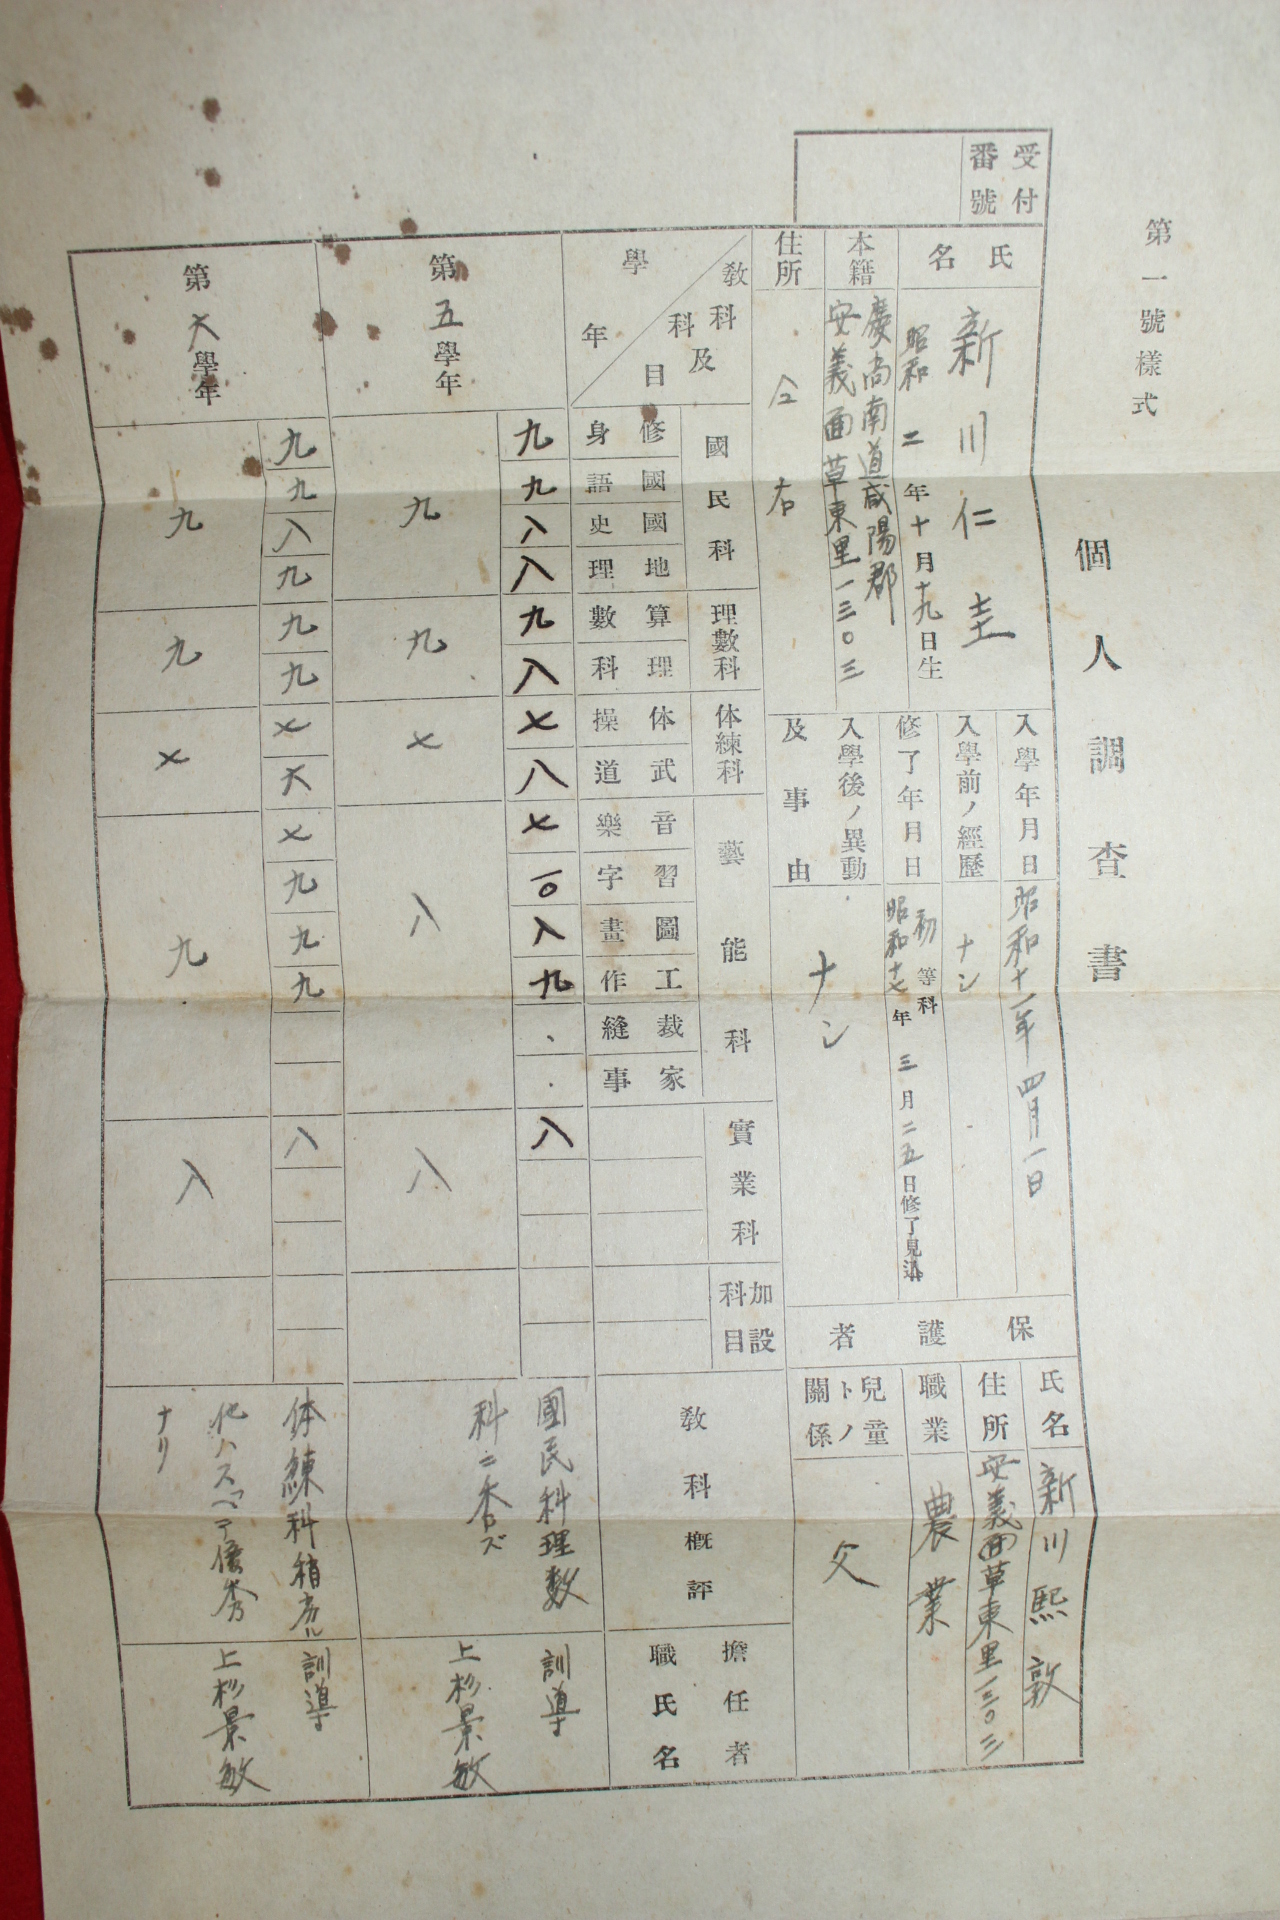 第一號樣式
個人調査書
受付
番號
氏名
新川仁圭
昭和二年十月十九日生
本籍
慶尚南道咸陽郡
安義面草東里一三〇三
住所
仝右
入學年月日
昭和十一年四月一日
入學前ノ經歷
ナシ
修了年月日
初等科
昭和十七年三月二五日修了見込
入學後ノ異動
及事由
ナシ
保護者
氏名
新川熙敦
住所
安義面草東里一三〇三
職業
農業
兒童
トノ
關係
父
敎科及
科目
學年
國民科
理數科
体練科
藝能科
實業科
加設
科目
敎科概評
擔任者
職氏名
修身
國語
國史
地理
算數
理科
体操
武道
音樂
習字
圖畫
工作
裁縫
家事
第五學年
九
九
八
八
九
八
七
八
七
一〇
八
九
八
九
九
七
八
八
國民科理数
科ニ秀ズ
訓導
上杉景敏
第六學年
九
九
八
九
九
九
七
六
七
九
九
九
八
九
九
七
九
八
体練科稍劣ル
他ハスベテ優秀
ナリ
訓導
上杉景敏